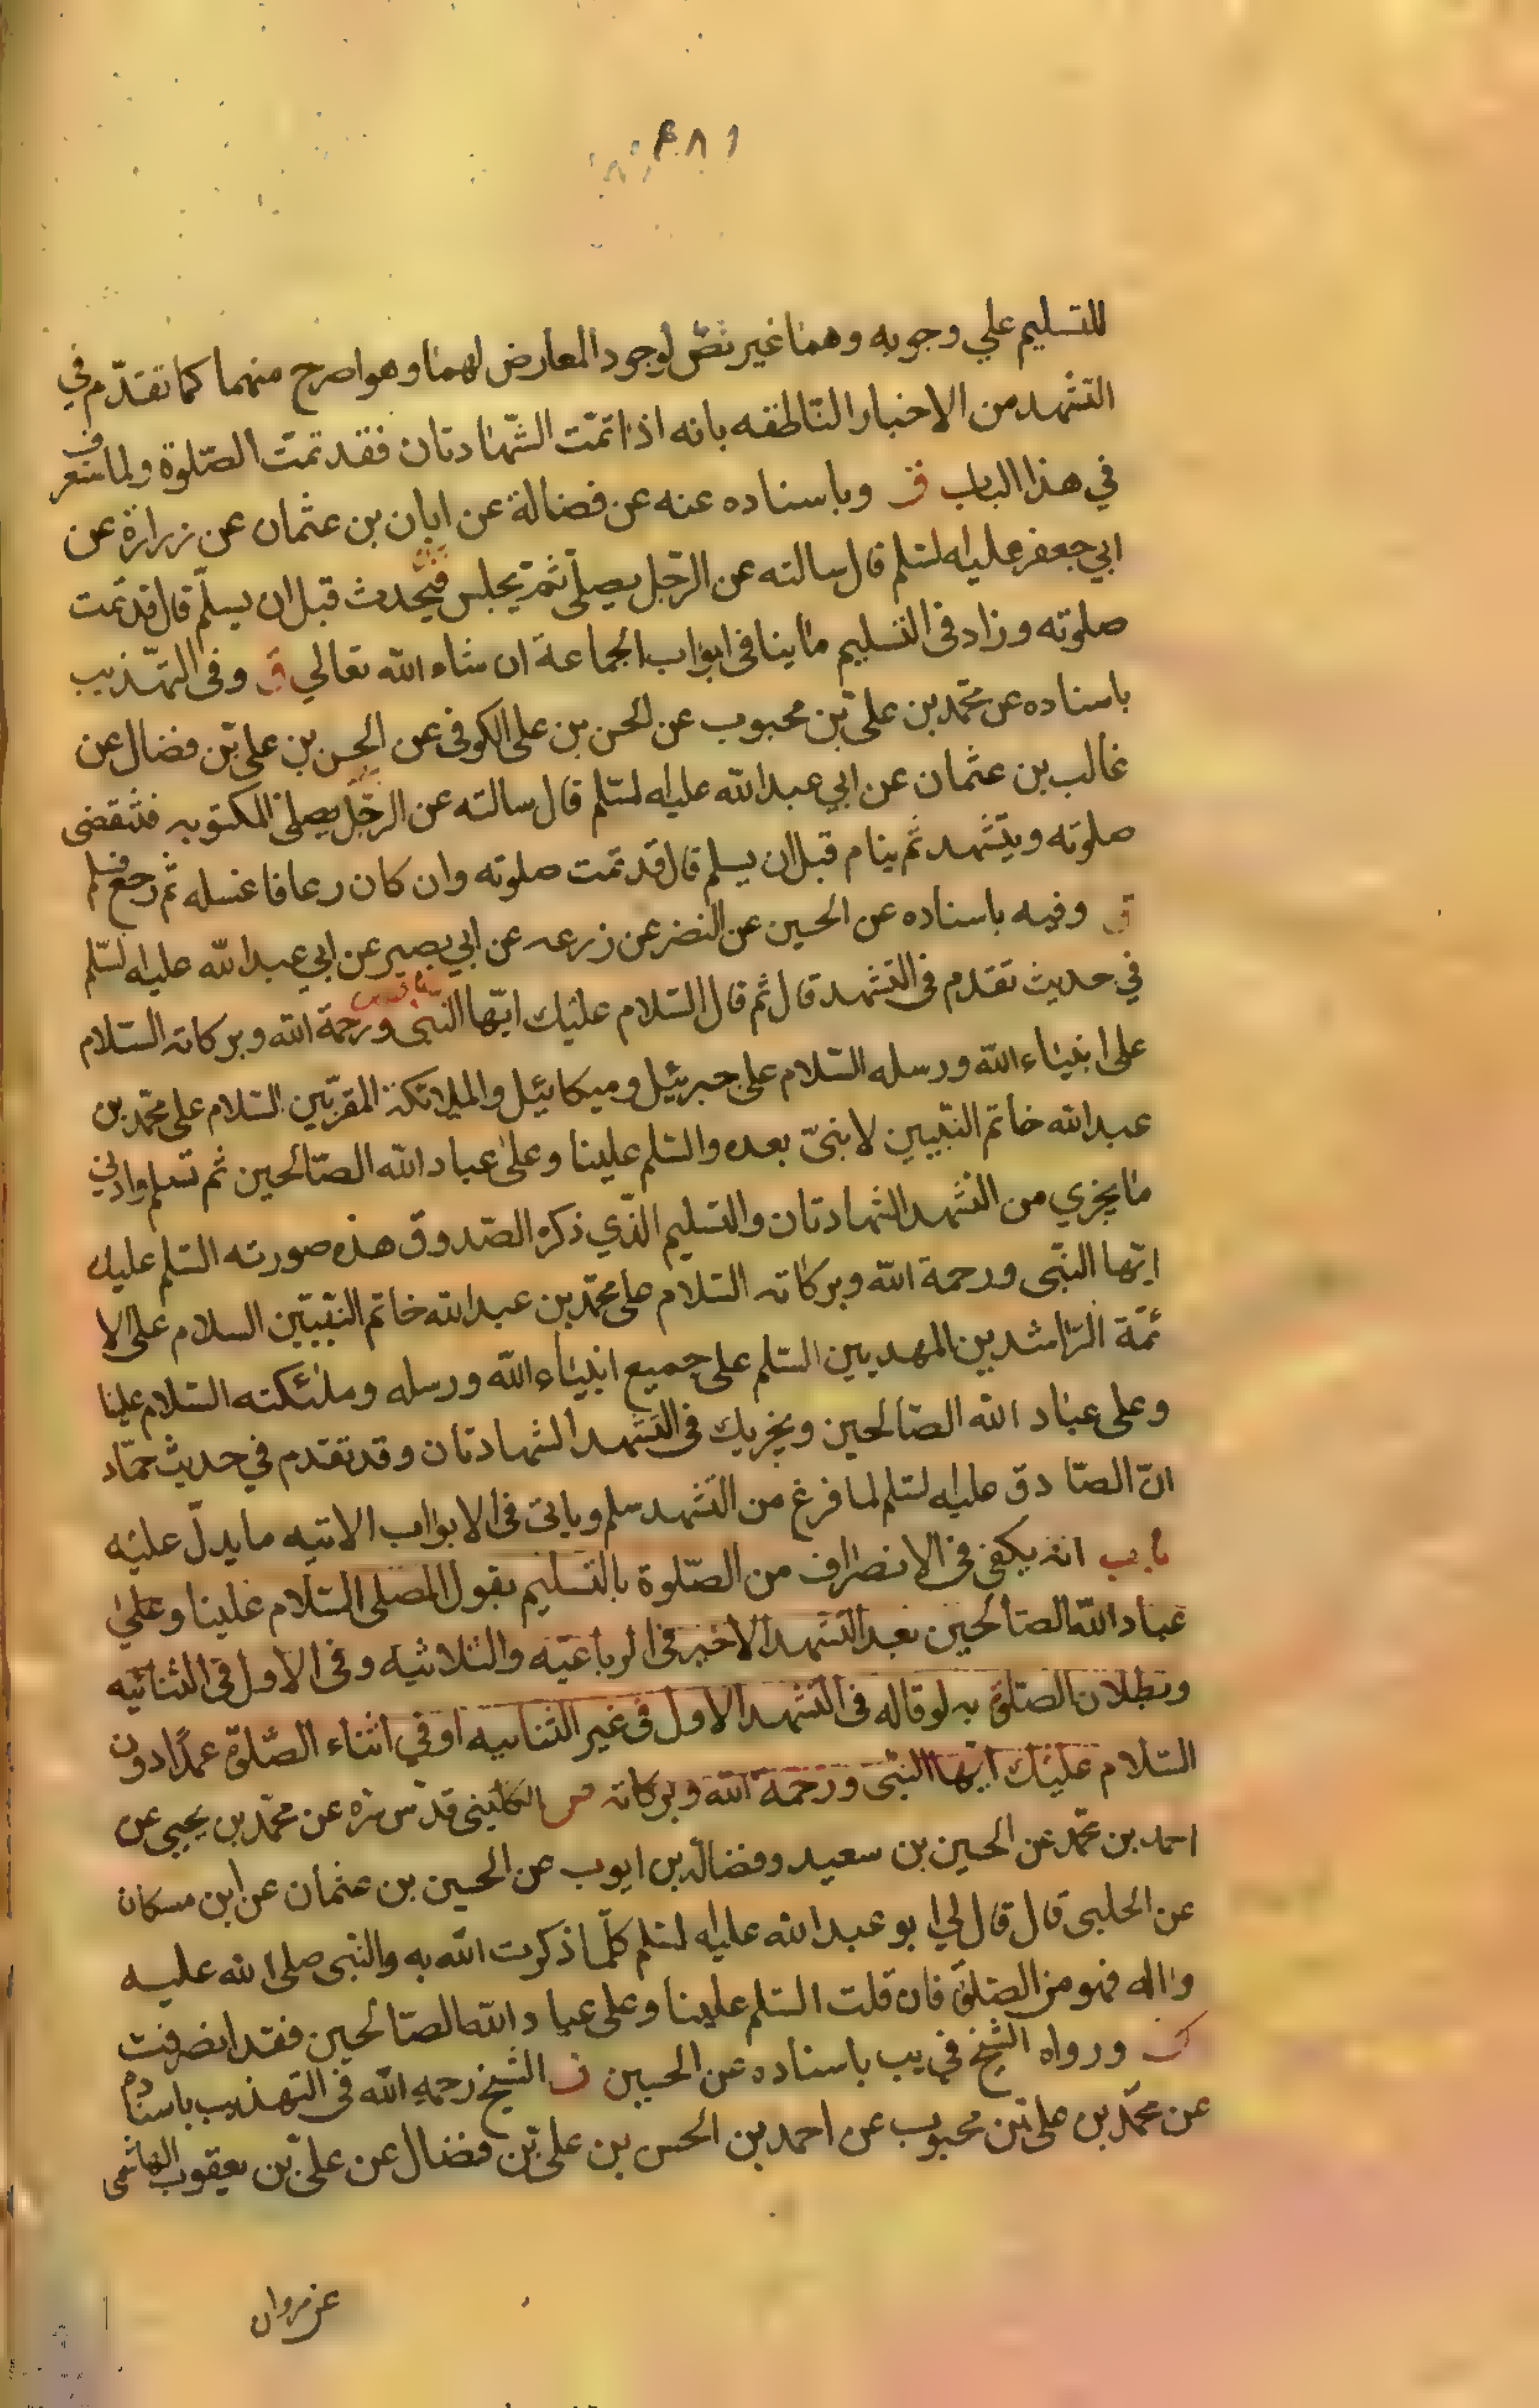 للتسليم علي وجوبه وهما غير نصّ لوجود المعارض لهما وهو اصرح منهما كما تقدّم في
التشهد من الاخبار الناطقه بانه اذا تمّت الشّهادتان فقد تمّت الصّلوة ولما ستعرف
في هذا الباب ق وباسناده عنه عن فضالة عن ابان بن عثمان عن زرارة عن
ابي جعفر عليه لسّلم قال سالته عن الرّجل يصلّي ثمّ يجلس فيحدث قبل ان يسلّم قال قد تمّت
صلوته وزاد في التسليم ما ينافي ابواب الجماعة ان شاء الله تعالي ق وفي التهّذيب
باسناده عن محمّد بن علي بن محبوب عن لحسن بن علي الكوفي عن الحسن بن علي بن فضال عن
غالب بن عثمان عن ابي عبد الله عليه لسّلم قال سالته عن الرجّل يصلي المكتوبه فتنقضى
صلوته ويتشهد ثم ينام قبل ان يسلم قال قد تمت صلوته وان كان رعافا غسله ثم رجع فسلم
ق وفيه باسناده عن الحسين عن النضر عن زرعه عن ابي بصير عن ابي عبد الله عليه لسّلم
في حديث تقدم في التشهد قال ثم قال السّلام عليك ايّها النّبى ورحمة الله وبركاته السّلام
على انبياء الله ورسله السّلام على جبرئيل وميكائيل والملائكة المقرّبين السّلام على محمّد بن
عبد الله خاتم النّبيين لا نبىّ بعده والسّلم علينا وعلى عباد الله الصّالحين ثم تسلم وادني
ما يجزي من التشهد الشهادتان والتسليم الذّي ذكره الصّدوق هذه صورته السّلم عليك
ايّها النبّى ورحمة الله وبركاته السّلام على محمّد بن عبد الله خاتم النّبيّين السلام على الا
ئمّة الرّاشدين المهديين السّلم على جميع انبياء الله ورسله وملئكته السّلام علينا
وعلى عباد الله الصّالحين ويجزيك في التشهد الشهادتان وقد تقدم في حديث حمّاد
انّ الصّادق عليه لسّلم لما فرغ من التّشهد سلم وياتي في الابواب الاتيه ما يدلّ عليه
باب انّه يكفى في الانصراف من الصّلوة بالتسليم بقول المصلى السّلام علينا وعلي
عباد الله الصّالحين بعد التّشهد الاخير في الرباعيّه والثلاثيه وفي الاول في الثنائيه
وبطلان الصّلوة به لو قاله في التّشهد الاول في غير الثنائيه او في اثناء الصّلوة عمدًا دون
السّلام عليك ايّها النبّى ورحمة الله وبركاته ص الكلينى قدّس سّره عن محمّد بن يحيى عن
احمد بن محمّد عن الحسين بن سعيد وفضالة بن ايوب عن الحسين بن عثمان عن ابن مسكان
عن الحلبى قال قال لي ابو عبد الله عليه لسّلم كلّما ذكرت الله به والنّبى صلى الله عليه
واله فهو من الصّلوة فان قلت السّلم علينا وعلى عباد الله الصّالحين فقد انصرفت
ورواه الشّيخ في يب باسناده عن الحسين الشّيخ رحمه الله في التهذيب باسناده
عن محمّد بن على بن محبوب عن احمد بن الحسن بن علىّ بن فضال عن علىّ بن يعقوب الهاشمى
عن مروان